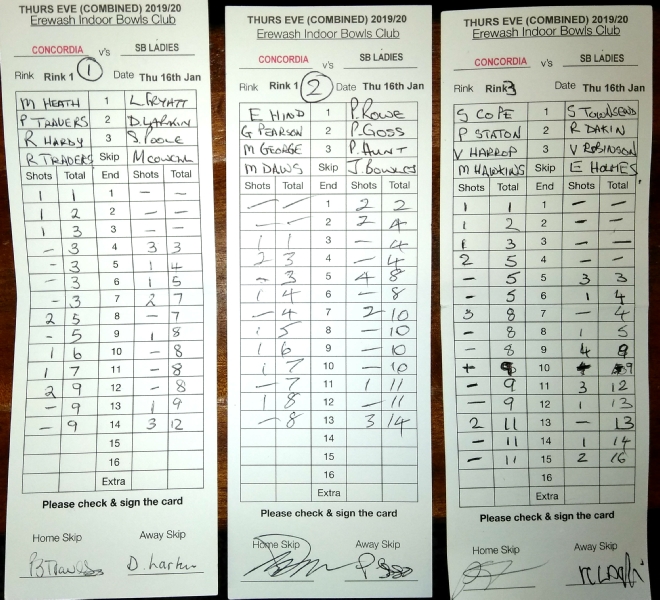 THURS EVE (COMBINED) 2019/20
Erewash Indoor Bowls Club
CONCORDIA v's SB LADIES
Rink Rink 1 1 Date Thu 16th Jan
M HEATH 1 L GYATT
P TRAVERS 2 D. LARKIN
R HARDY 3 S. POOLE
R TRADERS Skip
Shots Total End Shots Total
1 1 1 — —
1 2 2 — —
1 3 3 — —
- 3 4 3 3
- 3 5 1 4
- 3 6 1 5
- 3 7 2 7
2 5 8 - 7
- 5 9 1 8
1 6 10 - 8
1 7 11 - 8
2 9 12 - 8
- 9 13 1 9
- 9 14 3 12
15
16
Extra
Please check & sign the card
Home Skip Away Skip
D. Larkin
THURS EVE (COMBINED) 2019/20
Erewash Indoor Bowls Club
CONCORDIA v's SB LADIES
Rink Rink 1 2 Date Thu 16th Jan
E HIND 1 P. ROWE
G PEARSON 2 P. GOSS
M GEORGE 3 P. HUNT
M DAWS Skip J. BOWLES
Shots Total End Shots Total
— — 1 2 2
— — 2 2 4
1 1 3 - 4
2 3 4 - 4
- 3 5 4 8
1 4 6 - 8
- 4 7 2 10
1 5 8 - 10
1 6 9 - 10
1 7 10 - 10
- 7 11 1 11
1 8 12 - 11
- 8 13 3 14
14
15
16
Extra
Please check & sign the card
Home Skip Away Skip
THURS EVE (COMBINED) 2019/20
Erewash Indoor Bowls Club
CONCORDIA v's SB LADIES
Rink Rink 3 Date Thu 16th Jan
S COPE 1 S TOWNSEND
P STATON 2 R DAKIN
V HARROP 3 V ROBINSON
M HAWKINS Skip E HOLMES
Shots Total End Shots Total
1 1 1 — —
1 2 2 — —
1 3 3 — —
2 5 4 — —
- 5 5 3 3
- 5 6 1 4
3 8 7 - 4
- 8 8 1 5
- 8 9 4 9
10
- 9 11 3 12
- 9 12 1 13
2 11 13 - 13
- 11 14 1 14
- 11 15 2 16
16
Extra
Please check & sign the card
Home Skip Away Skip